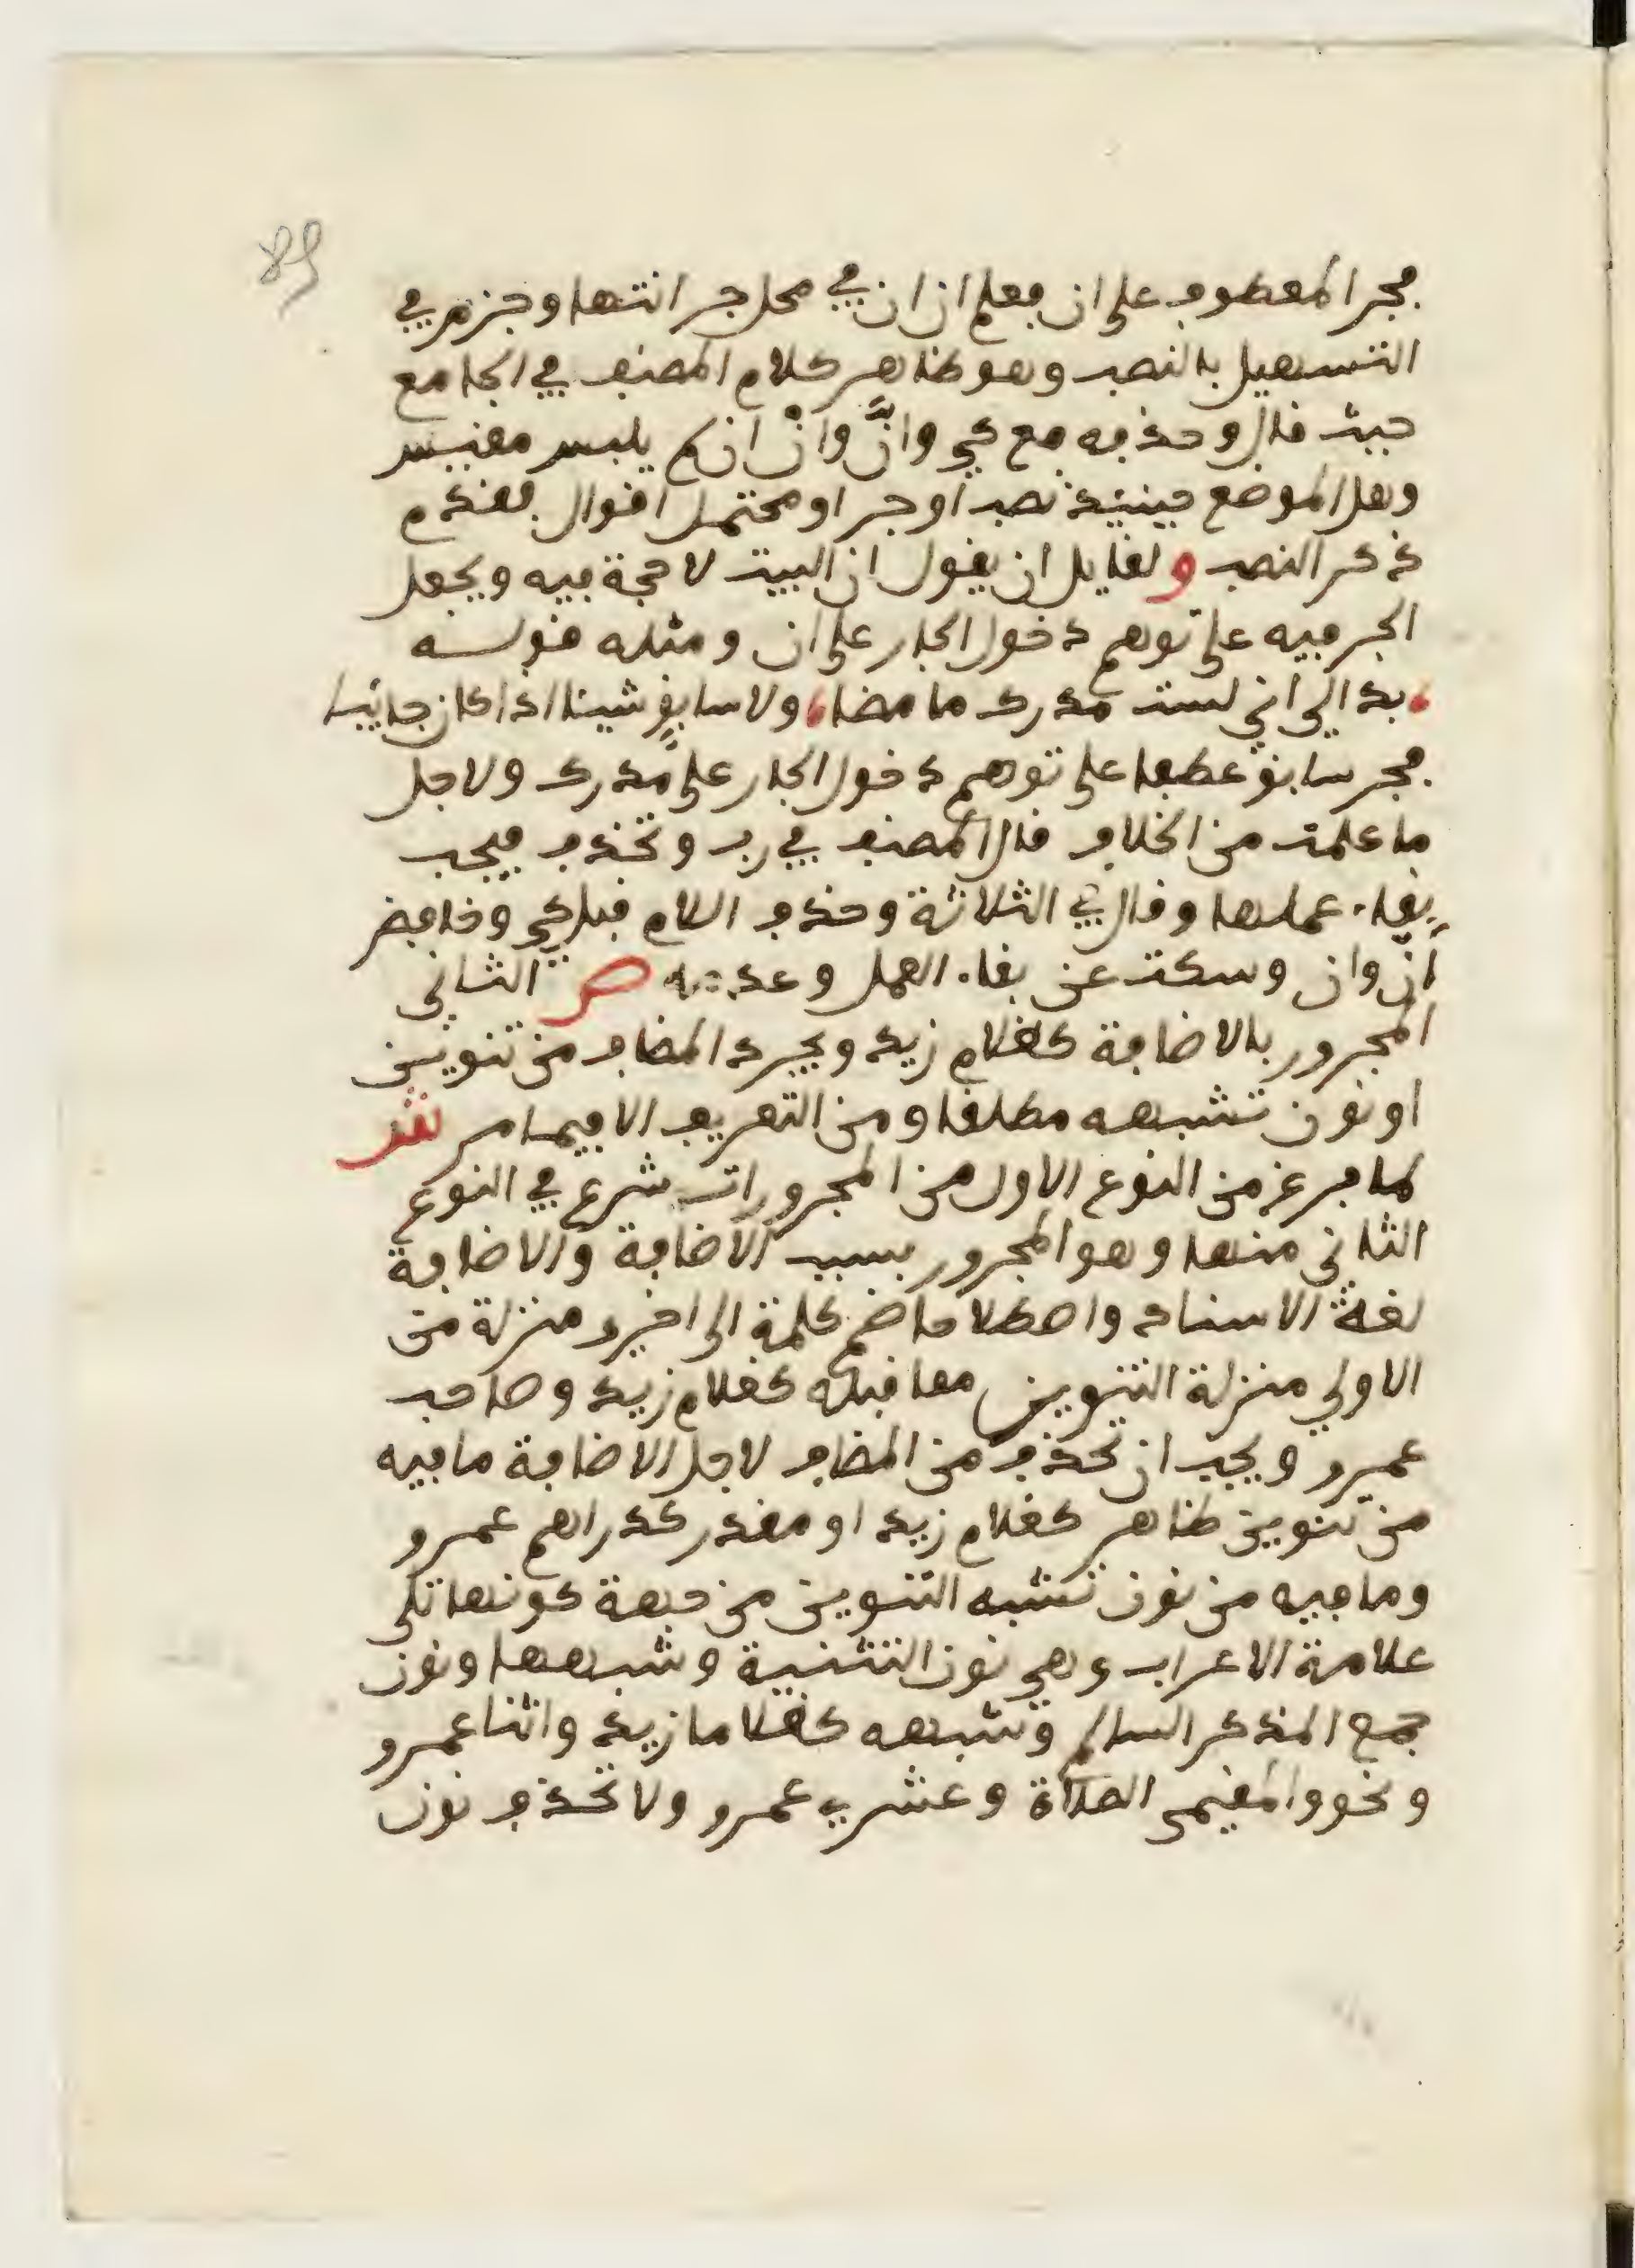 89
فجر المعطوف على ان فعلم ان ان في محل جر انتهى وجزم في
التسهيل بالنصب وهو ظاهر كلام المصنف في الجامع
حيث قال وحذفه مع كي وانَّ وانْ ان لم يلبس مقيس
وهل الموضع حينئذ نصب او جر او محتمل اقوال فقدم
ذكر النصب ولقايل ان يقول ان البيت لا حجة فيه ويجعل
الجر فيه على توهم دخول الجار على ان ومثله قولـه
بدا لي اني لست مدرك ما مضا، ولا سابقٍ شيئا اذا كان جائيا
فجر سابق عطفا على توهم دخول الجار على مدرك ولاجل
ما علمت من الخلاف قال المصنف في رب وتحذف فيجب
بقاء عملها وقال في الثلاثة وحذف اللام قبل كي وخافض
انّ وان وسكت عن بقاء العمل وعدمه ص الثاني
المجرور بالاضافة كغلام زيد ويجرد المضاف من تنوين
او نون تشبهه مطلقا ومن التعريف الا فيما مر ش
لما فرغ من النوع الاول من المجرورات شرع في النوع
الثاني منها وهو المجرور بسبب الاضافة والاضافة
لغة الاسناد واصطلاحا ضم كلمة الى اخرى منزلة من
الاولي منزلة التنوين مما قبله كغلام زيد وصاحب
عمرو ويجب ان تحذف من المضاف لاجل الاضافة ما فيه
من تنوين ظاهر كغلام زيد او مقدر كدراهم عمرو
وما فيه من نون تشبه التنوين من جهة كونها تلى
علامة الاعراب وهي نون التثنية وشبهها ونون
جمع المذكر السالم وشبهه كغلاما زيد واثنا عمرو
ونحو والمقيمى الصلاة وعشري عمرو ولا تحذف نون